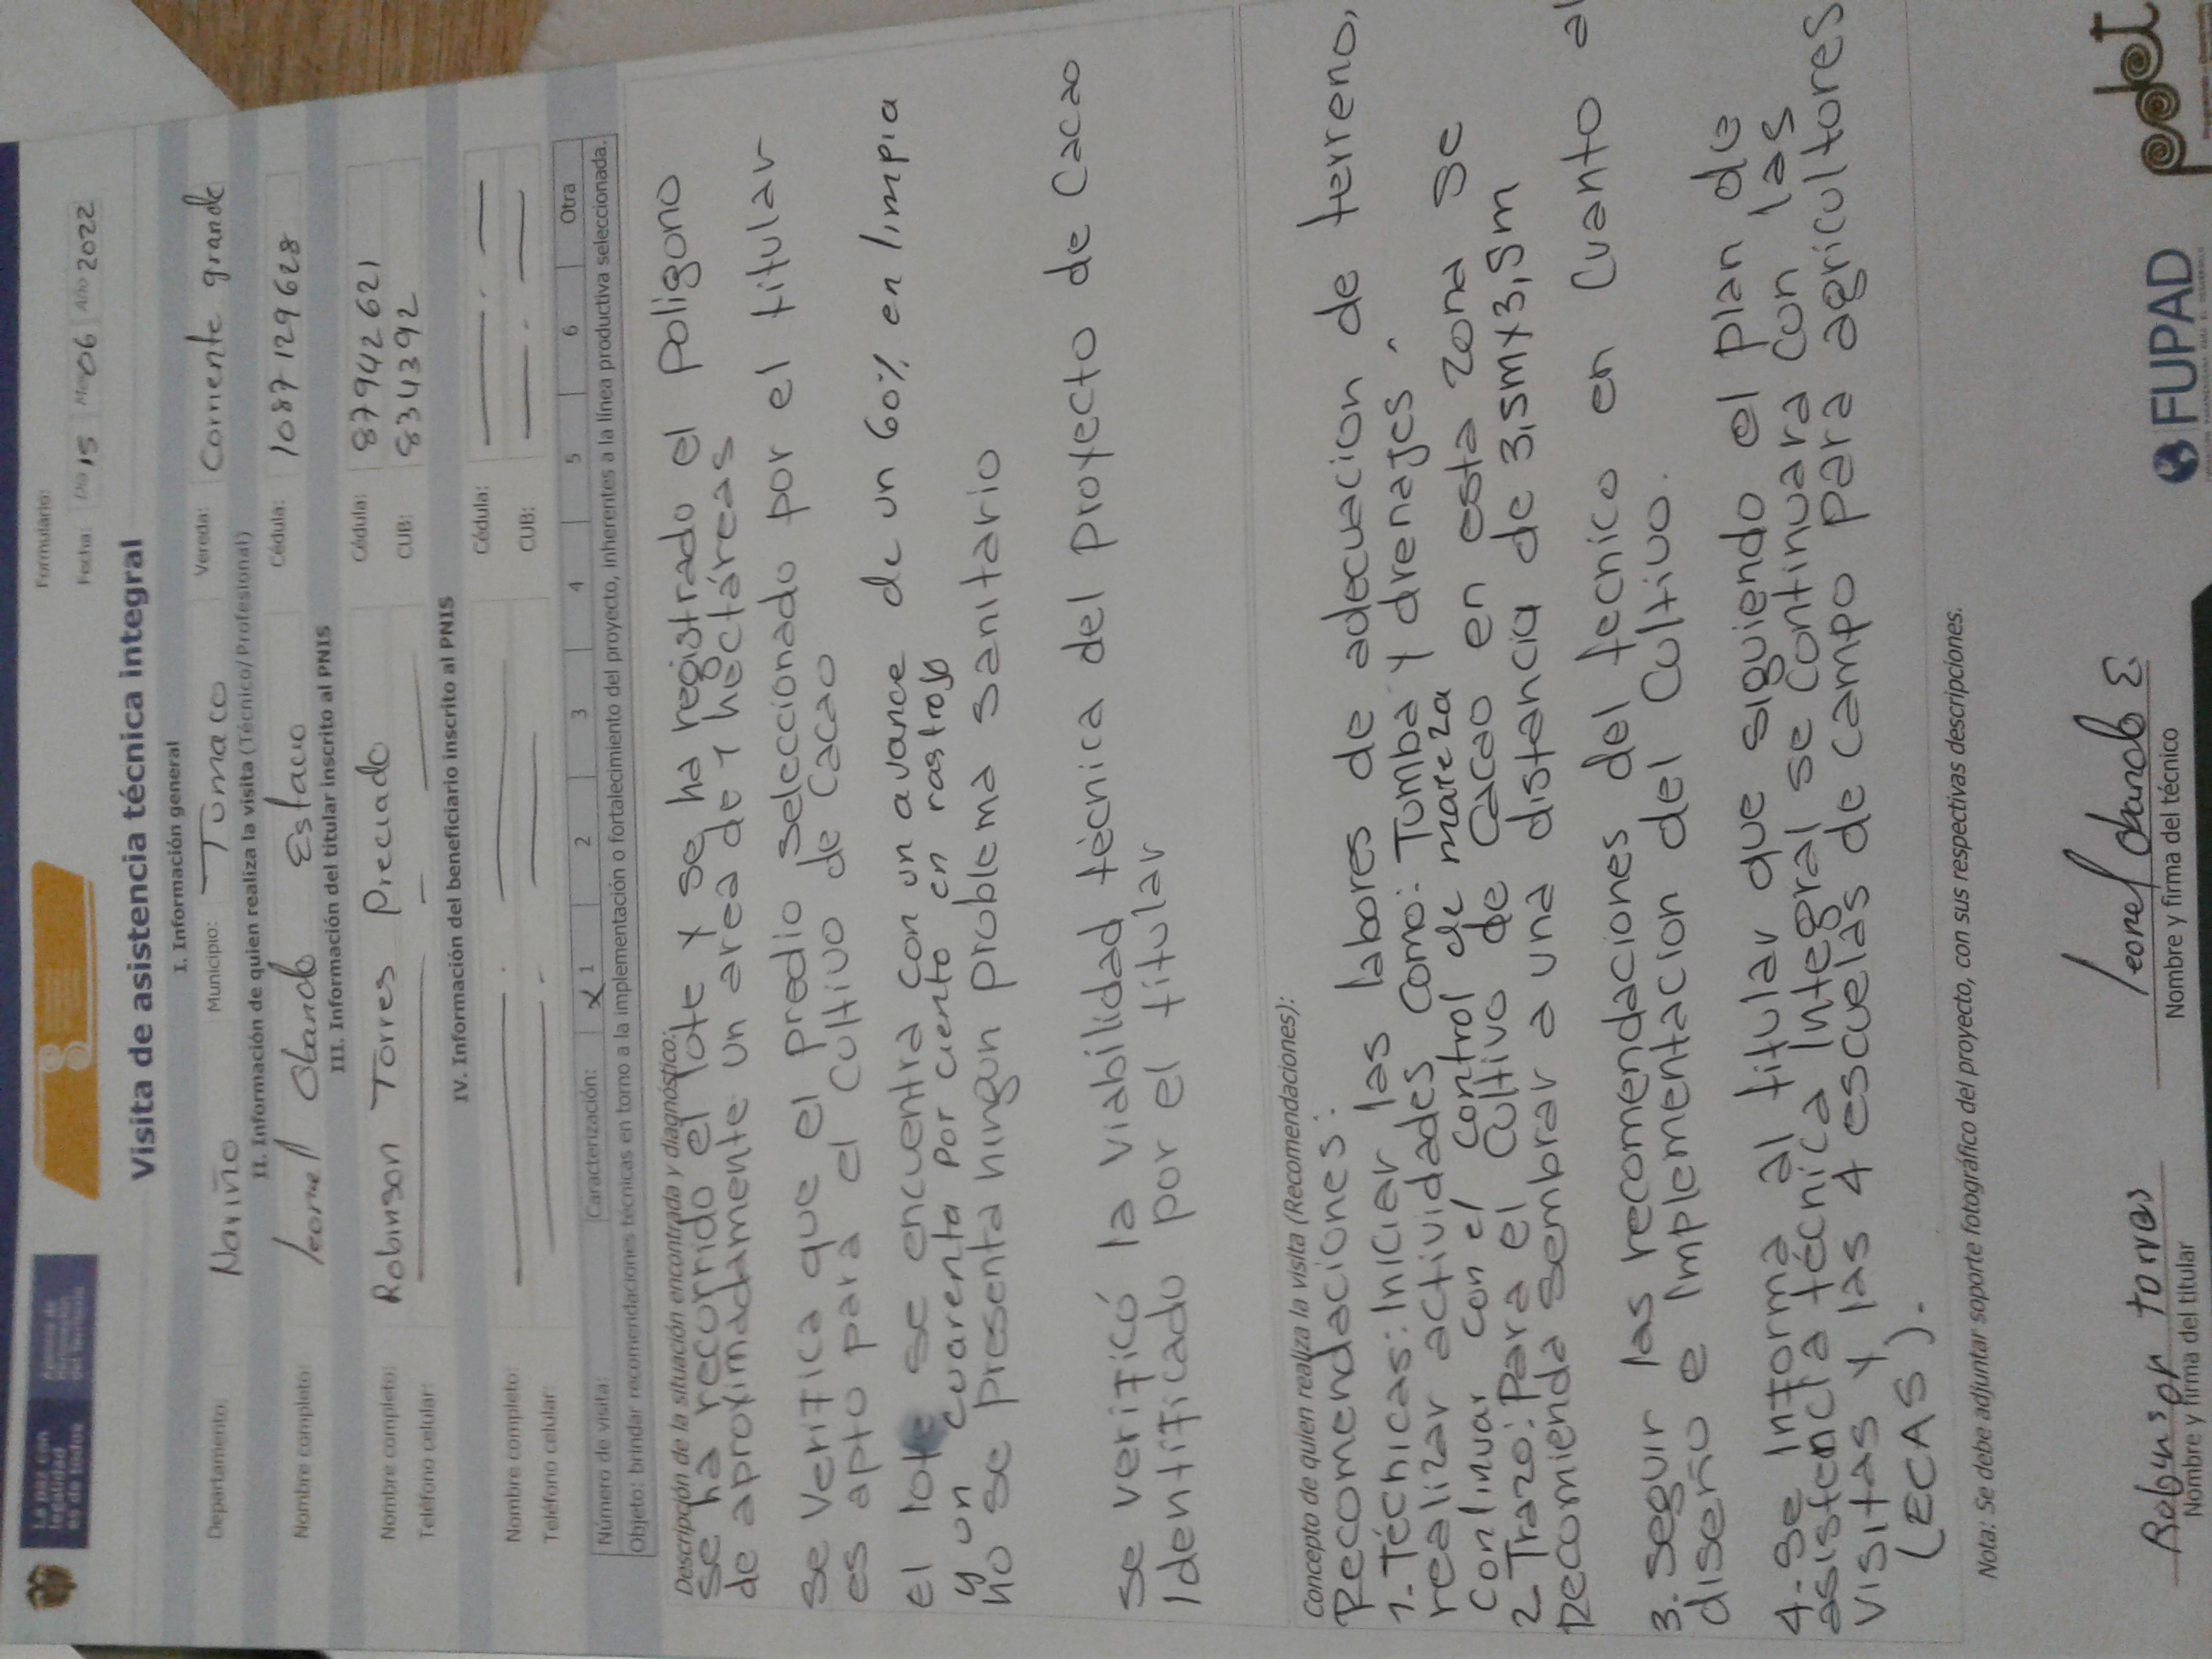 La paz con legalidad es de todos
Formulario:
Fecha: Día 15 Mes 06 Año 2022
Visita de asistencia técnica integral
I. Información general
Departamento: Nariño Municipio: Tumaco Vereda: Corriente grande
II. Información de quien realiza la visita (Técnico/Profesional)
Nombre completo: leonel Obando Estacio Cédula: 1087129628
III. Información del titular inscrito al PNIS
Nombre completo: Robinson Torres Preciado Cédula: 87942621
Teléfono celular: CUB: 834392
IV. Información del beneficiario inscrito al PNIS
Nombre completo: Cédula:
Teléfono celular: CUB:
Número de visita: Caracterización: X 1 2 3 4 5 6 Otra
Objeto: brindar recomendaciones técnicas en torno a la implementación o fortalecimiento del proyecto, inherentes a la línea productiva seleccionada.
Descripción de la situación encontrada y diagnóstico:
se ha recorrido el lote y se ha registrado el poligono
de aproximadamente un area de 1 hectáreas
se Verifica que el predio seleccionado por el titular
es apto para el cultivo de cacao
el lote se encuentra con un avance de un 60% en limpia
y un cuarenta por ciento en rastrojo
no se presenta ningun problema sanitario
se verificó la viabilidad técnica del proyecto de Cacao
Identificado por el titular
Concepto de quien realiza la visita (Recomendaciones):
Recomendaciones:
1. Técnicas: Iniciar las labores de adecuacion de terreno,
realizar actividades como: Tumba y drenajes,
continuar con el control de mareza
2 Trazo: Para el cultivo de cacao en esta zona se
recomienda sembrar a una distancia de 3,5mx3,5m
3. seguir las recomendaciones del tecnico en cuanto al
diseño e implementacion del cultivo.
4.- Se Informa al titular que siguiendo el plan de
asistencia técnica Integral se continuara con las
visitas y las 4 escuelas de campo para agricultores
(ECAS).
Nota: Se debe adjuntar soporte fotográfico del proyecto, con sus respectivas descripciones.
Robinson torres
Nombre y firma del titular
leonel Obando E
Nombre y firma del técnico
FUPAD
pdet